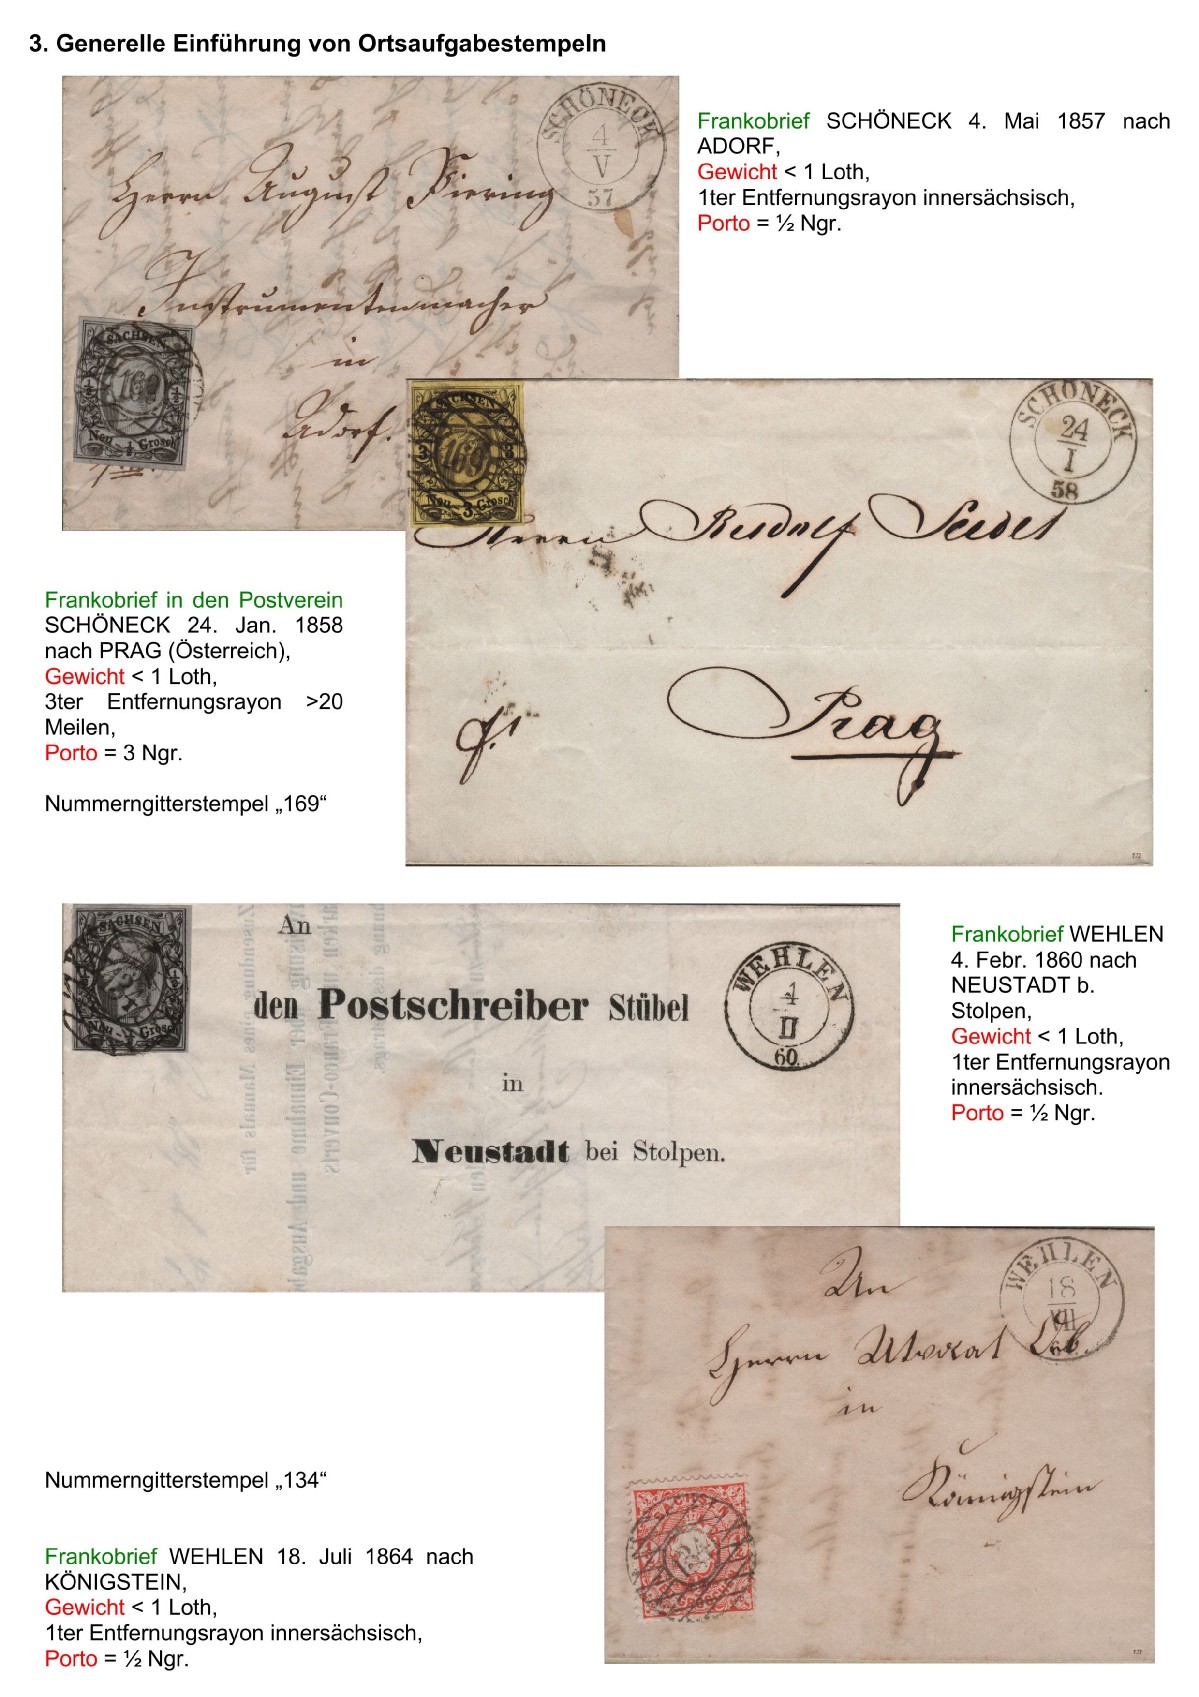 3. Generelle Einführung von Ortsaufgabestempeln
SCHÖNECK
4
V
57
Herrn August Fiering
Instrumentenmacher
in
Adorf.
SACHSEN
169
Neu - ½ Grosch
Frankobrief SCHÖNECK 4. Mai 1857 nach
ADORF,
Gewicht < 1 Loth,
1ter Entfernungsrayon innersächsisch,
Porto = ½ Ngr.
SACHSEN
3 169 3
Neu - 3 Grosch
SCHÖNECK
24
I
58
Herrn Rudolf Seidel
Prag
Frankobrief in den Postverein
SCHÖNECK 24. Jan. 1858
nach PRAG (Österreich),
Gewicht < 1 Loth,
3ter Entfernungsrayon >20
Meilen,
Porto = 3 Ngr.
Nummerngitterstempel „169“
SACHSEN
Neu - ½ Grosch
An
den Postschreiber Stübel
in
Neustadt bei Stolpen.
WEHLEN
4
II
60.
Frankobrief WEHLEN
4. Febr. 1860 nach
NEUSTADT b.
Stolpen,
Gewicht < 1 Loth,
1ter Entfernungsrayon
innersächsisch.
Porto = ½ Ngr.
WEHLEN
18
VII
An
Herrn Advocat
in
Königstein
SACHSEN
Nummerngitterstempel „134“
Frankobrief WEHLEN 18. Juli 1864 nach
KÖNIGSTEIN,
Gewicht < 1 Loth,
1ter Entfernungsrayon innersächsisch,
Porto = ½ Ngr.